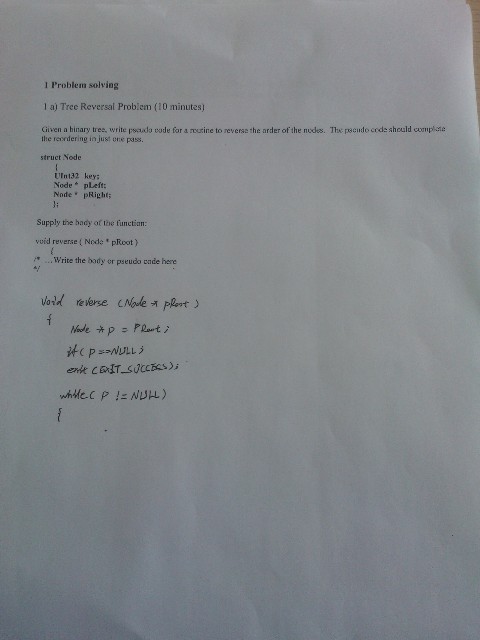 1 Problem solving
1 a) Tree Reversal Problem (10 minutes)
Given a binary tree, write pseudo code for a routine to reverse the order of the nodes. The pseudo code should complete
the reordering in just one pass.
struct Node
{
UInt32 key;
Node * pLeft;
Node * pRight;
};
Supply the body of the function:
void reverse ( Node * pRoot )
{
/* ...Write the body or pseudo code here
*/
void reverse (Node * pRoot )
{
Node *p = PRoot;
if( p==NULL)
exit (EXIT_SUCCESS);
while( P != NULL)
{